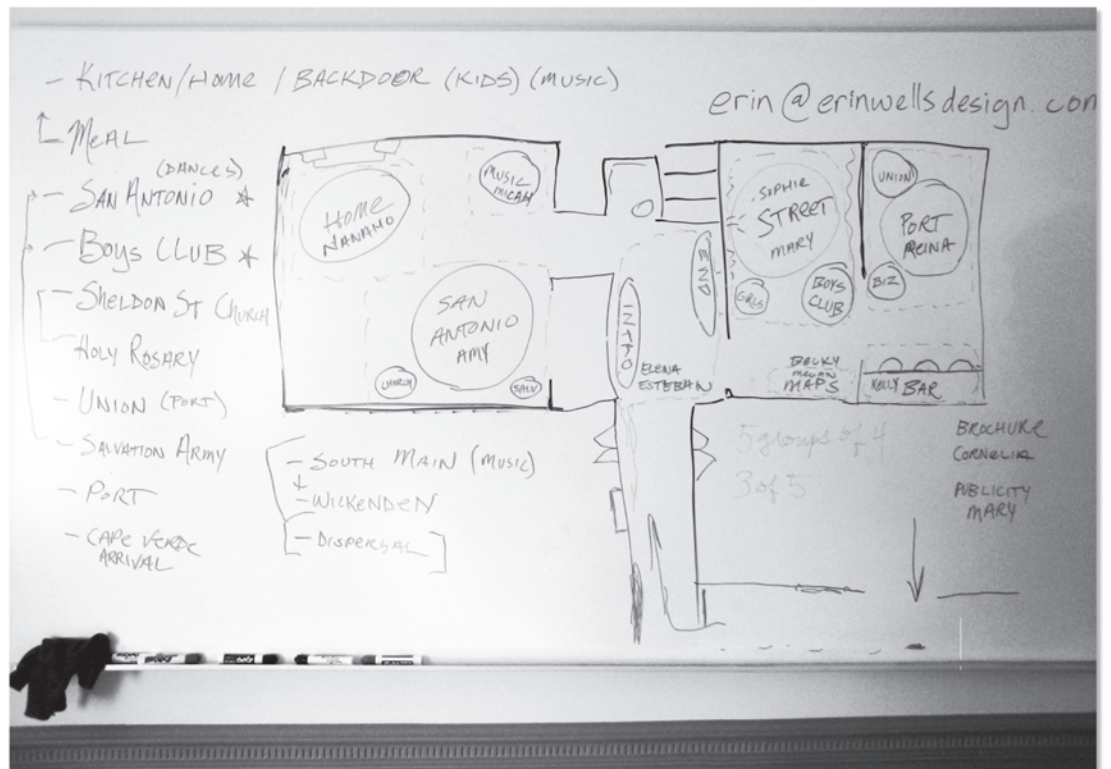 - KITCHEN/HOME / BACKDOOR (KIDS) (MUSIC)
erin@erinwellsdesign.com
MEAL
(DANCES)
- SAN ANTONIO ☆
- BOYS CLUB ☆
- SHELDON ST CHURCH
- HOLY ROSARY
- UNION (PORT)
- SALVATION ARMY
- PORT
- CAPE VERDE
ARRIVAL
- SOUTH MAIN (MUSIC)
+
- WICKENDEN
- DISPERSAL
HOME
NANAMO
MUSIC
MICAH
SAN
ANTONIO
AMY
CHURCH
SALV
INTRO
END
ELENA
ESTEBAN
SOPHIE
STREET
MARY
GRLS
BOYS
CLUB
UNION
PORT
REINA
BIZ
BECKY
MEGAN
MAPS
KELLY BAR
5 groups of 4
3 of 5
BROCHURE
CORNELIA
PUBLICITY
MARY